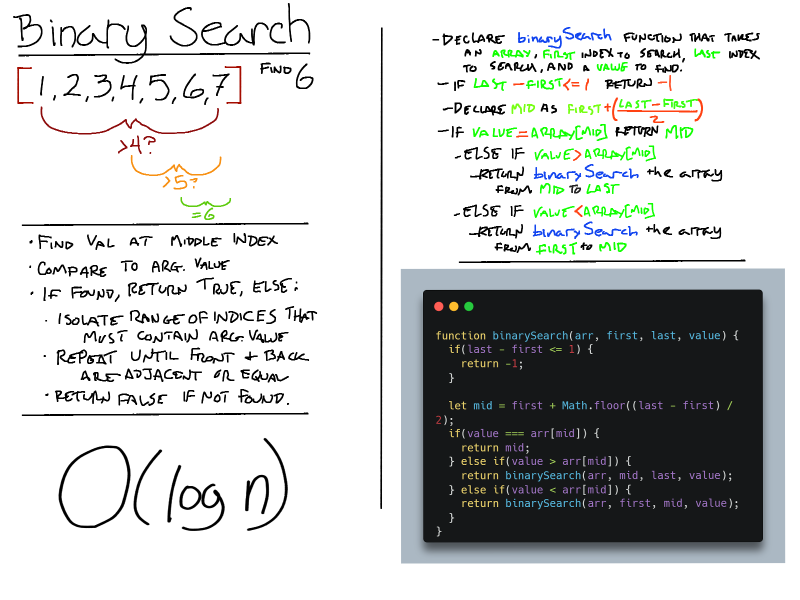 Binary Search
[1,2,3,4,5,6,7]
FIND 6
>4?
>5?
=6
• FIND VAL AT MIDDLE INDEX
• COMPARE TO ARG. VALUE
• IF FOUND, RETURN TRUE, ELSE:
• ISOLATE RANGE OF INDICES THAT
MUST CONTAIN ARG. VALUE
• REPEAT UNTIL FRONT & BACK
ARE ADJACENT OR EQUAL
• RETURN FALSE IF NOT FOUND.
O(log n)
- DECLARE binarySearch FUNCTION THAT TAKES
AN ARRAY, FIRST INDEX TO SEARCH, LAST INDEX
TO SEARCH, AND A VALUE TO FIND.
- IF LAST - FIRST <= 1 RETURN -1
- DECLARE MID AS FIRST + (LAST - FIRST / 2)
- IF VALUE = ARRAY[MID] RETURN MID
- ELSE IF VALUE > ARRAY[MID]
- RETURN binarySearch the array
FROM MID TO LAST
- ELSE IF VALUE < ARRAY[MID]
- RETURN binarySearch the array
FROM FIRST TO MID
function binarySearch(arr, first, last, value) {
if(last - first <= 1) {
return -1;
}
let mid = first + Math.floor((last - first) /
2);
if(value === arr[mid]) {
return mid;
} else if(value > arr[mid]) {
return binarySearch(arr, mid, last, value);
} else if(value < arr[mid]) {
return binarySearch(arr, first, mid, value);
}
}